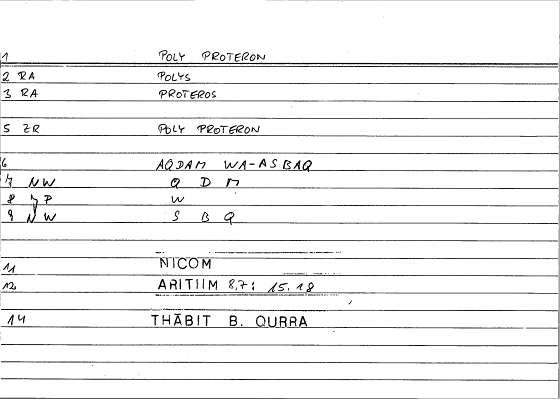 1 POLY PROTERON
2 RA POLYS
3 RA PROTEROS
5 ZR POLY PROTERON
6 AQDAM WA-ASBAQ
7 NW Q D M
8 JP W
9 NW S B Q
11 NICOM
12 ARITIIM 8,7: 15.18
14 THĀBIT B. QURRA